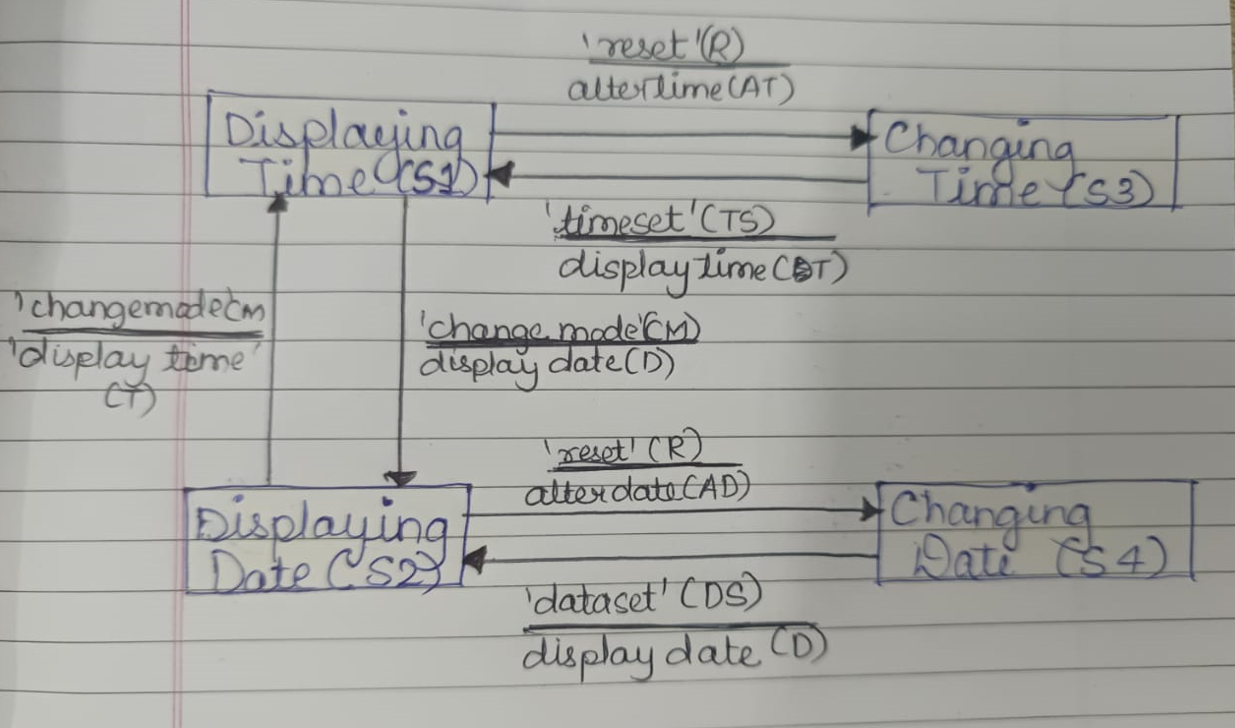 'reset'(R)
altertime(AT)
Displaying
Time (S1)
Changing
Time (S3)
'timeset'(TS)
display time(DT)
'changemode(CM
'display time'
(T)
'change mode'(CM)
display date(D)
'reset' (R)
alterdate(AD)
Displaying
Date (S2)
Changing
Date (S4)
'dataset' (DS)
display date (D)